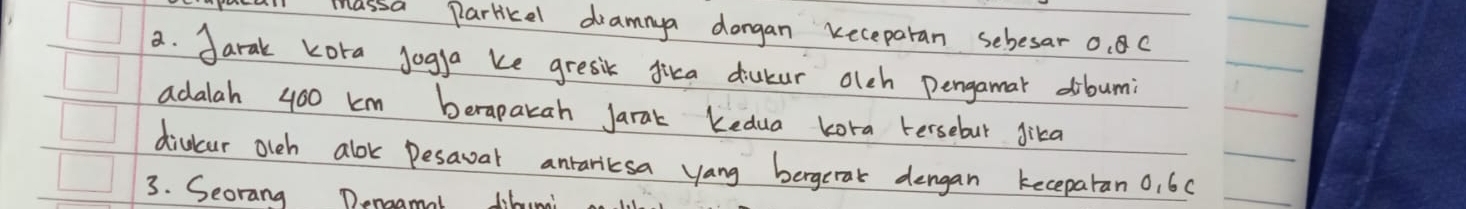 massa Partikel diamnya dongan kecepatan sebesar 0,8 C
2. Jarak kota Jogja ke gresik jika diukur oleh Pengamat dibumi
adalah 400 km berapakah jarak kedua kota tersebut jika
diukur oleh alok Pesawat antariksa yang bergerak dengan kecepatan 0,6 C
3. Seorang Pengamat dibumi